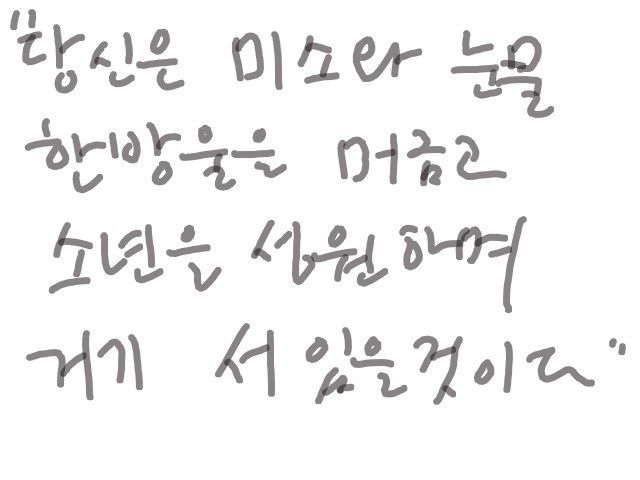 "당신은 미소와 눈물
한방울을 머금고
소년은 성원하며
거기 서 있을것이다"